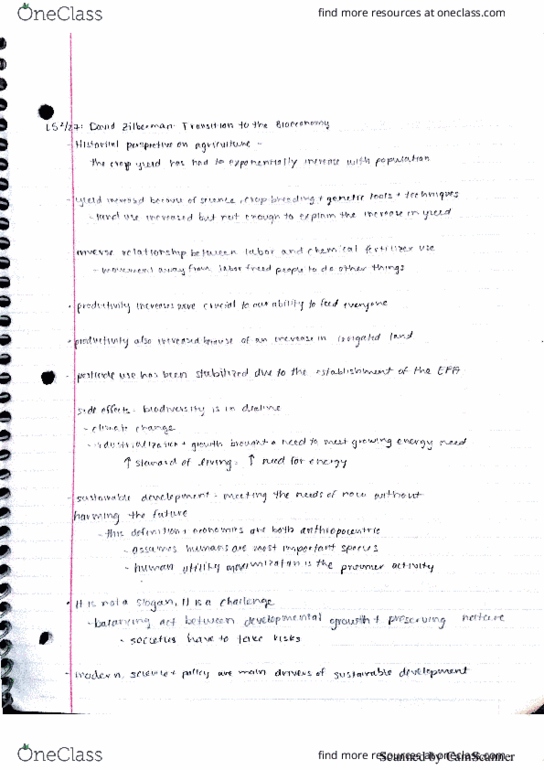 OneClass
find more resources at oneclass.com
L5 2/27: David Zilberman- Transition to the Bioeconomy
- Historical perspective on agriculture -
the crop yield has had to exponentially increase with population
- yield increased because of science, crop breeding + genetic tools + techniques
- land use increased but not enough to explain the increase in yield
inverse relationship between labor and chemical fertilizer use
- movement away from labor freed people to do other things
- productivity increases were crucial to our ability to feed everyone
- productivity also increased because of an increase in irrigated land
- pesticide use has been stabilized due to the establishment of the EPA
side effects- biodiversity is in decline
- climate change
- industrialization + growth brought a need to meet growing energy need
↑ standard of living = ↑ need for energy
- sustainable development - meeting the needs of now without
harming the future
- this definition + economics are both anthropocentric
- assumes humans are most important species
- human utility is the activity
• It is not a slogan, it is a challenge
- balancing act between developmental growth + preserving nature
- societies have to take risks
- modern science + policy are main drivers of sustainable development
OneClass
find more resources at oneclass.com
Scanned by CamScanner